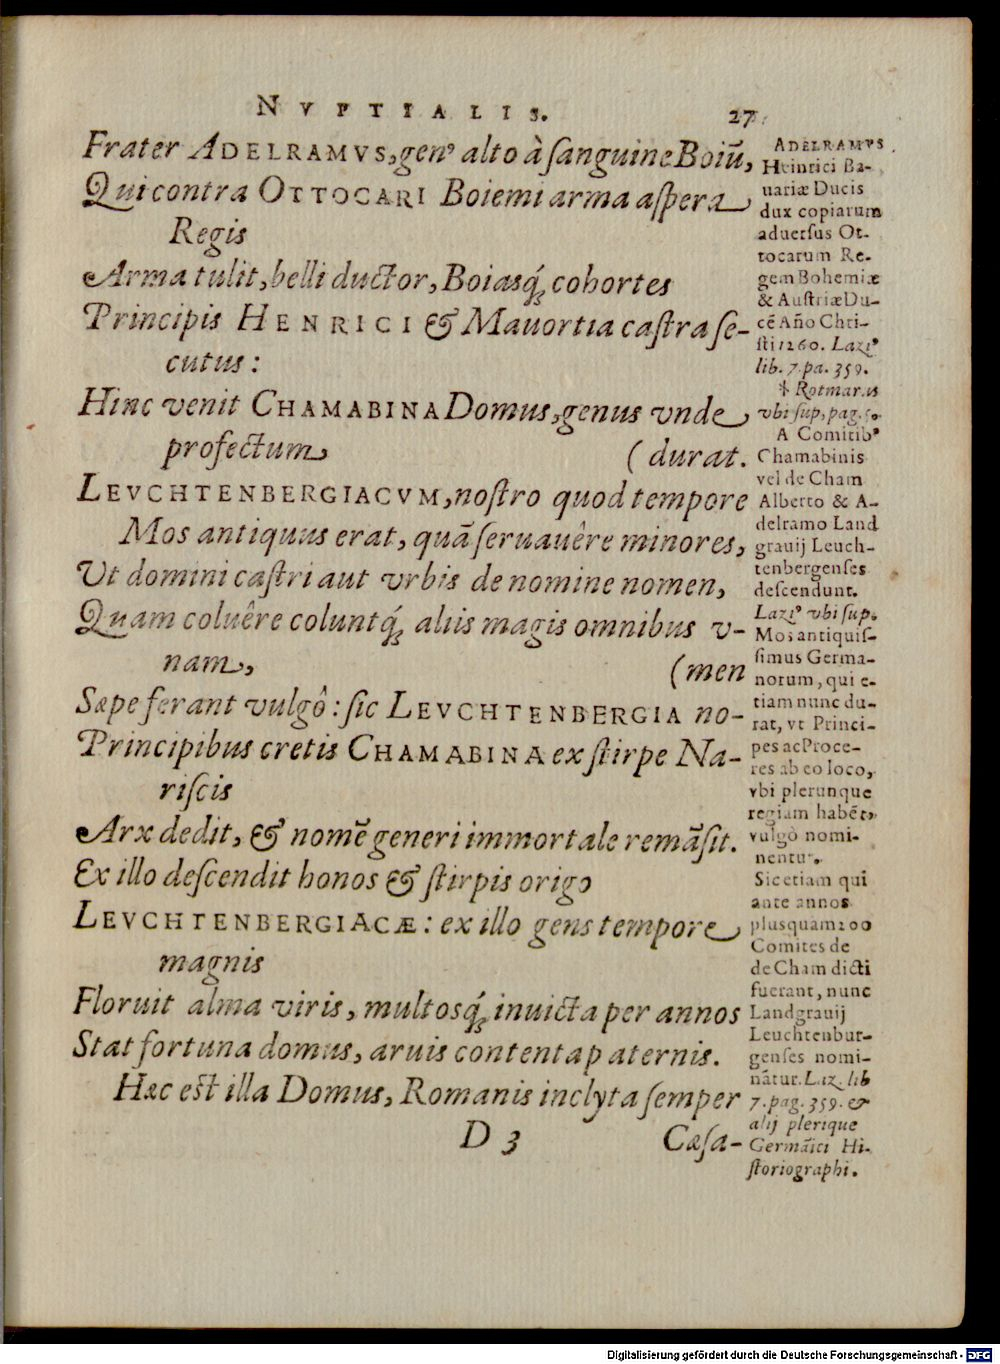 NVPTIALIS. 27
Frater ADELRAMVS, genꝰ alto à sanguine Boiū,
Qui contra OTTOCARI Boiemi arma aspera
Regis
Arma tulit, belli ductor, Boiasq́; cohortes
Principis HENRICI & Mauortia castra se-
cutus:
Hinc venit CHAMABINA Domus, genus vnde
profectum
(durat.
LEVCHTENBERGIACVM, nostro quod tempore
Mos antiquus erat, quā seruauêre minores,
Vt domini castri aut vrbis de nomine nomen,
Quam coluêre coluntq́; aliis magis omnibus v-
nam,
(men
Sæpe ferant vulgô: sic LEVCHTENBERGIA no-
Principibus cretis CHAMABINA ex stirpe Na-
riscis
Arx dedit, & nomē generi immortale remāsit.
Ex illo descendit honos & stirpis origo
LEVCHTENBERGIACÆ: ex illo gens tempore
magnis
Floruit alma viris, multosq́; inuicta per annos
Stat fortuna domus, aruis contenta paternis.
Hæc est illa Domus, Romanis inclyta semper
D 3 Cæsa-
ADELRAMVS
Heinrici Ba-
uariæ Ducis
dux copiarum
aduersus Ot-
tocarum Re-
gem Bohemiæ
& Austriæ Du-
cē Año Chri-
sti 1260. Lazꝰ
lib. 7. pa. 359.
* Rotmarus
vbi sup, pag.
A Comitibꝰ
Chamabinis
vel de Cham
Alberto & A-
delramo Land
grauij Leuch-
tenbergenses
descendunt.
Lazꝰ vbi sup.
Mos antiquis-
simus Germa-
norum, qui e-
tiam nunc du-
rat, vt Princi-
pes ac Proce-
res ab eo loco,
vbi plerunque
regiam habēt,
vulgò nomi-
nentur.
Sic etiam qui
ante annos
plus quam 200
Comites de
de Cham dicti
fuerant, nunc
Landgrauij
Leuchtenbur-
genses nomi-
nātur. Laz. lib
7. pag. 359. &
alij plerique
Germāici Hi-
storiographi.
Digitalisierung gefördert durch die Deutsche Forschungsgemeinschaft - DFG